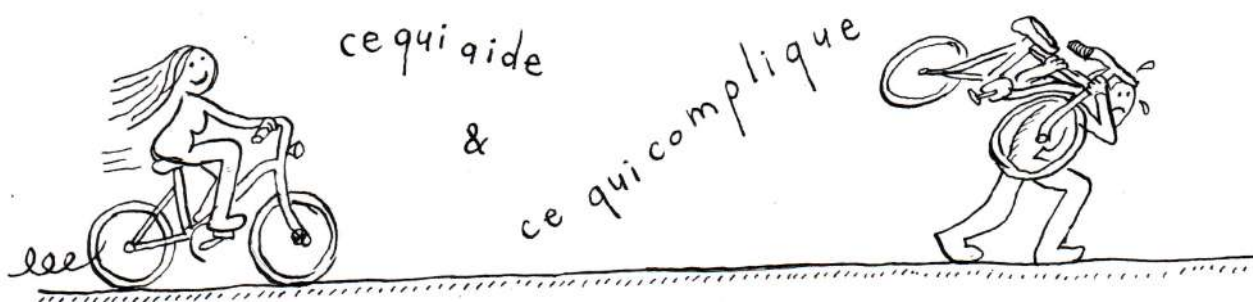 ce qui aide
&
ce qui complique